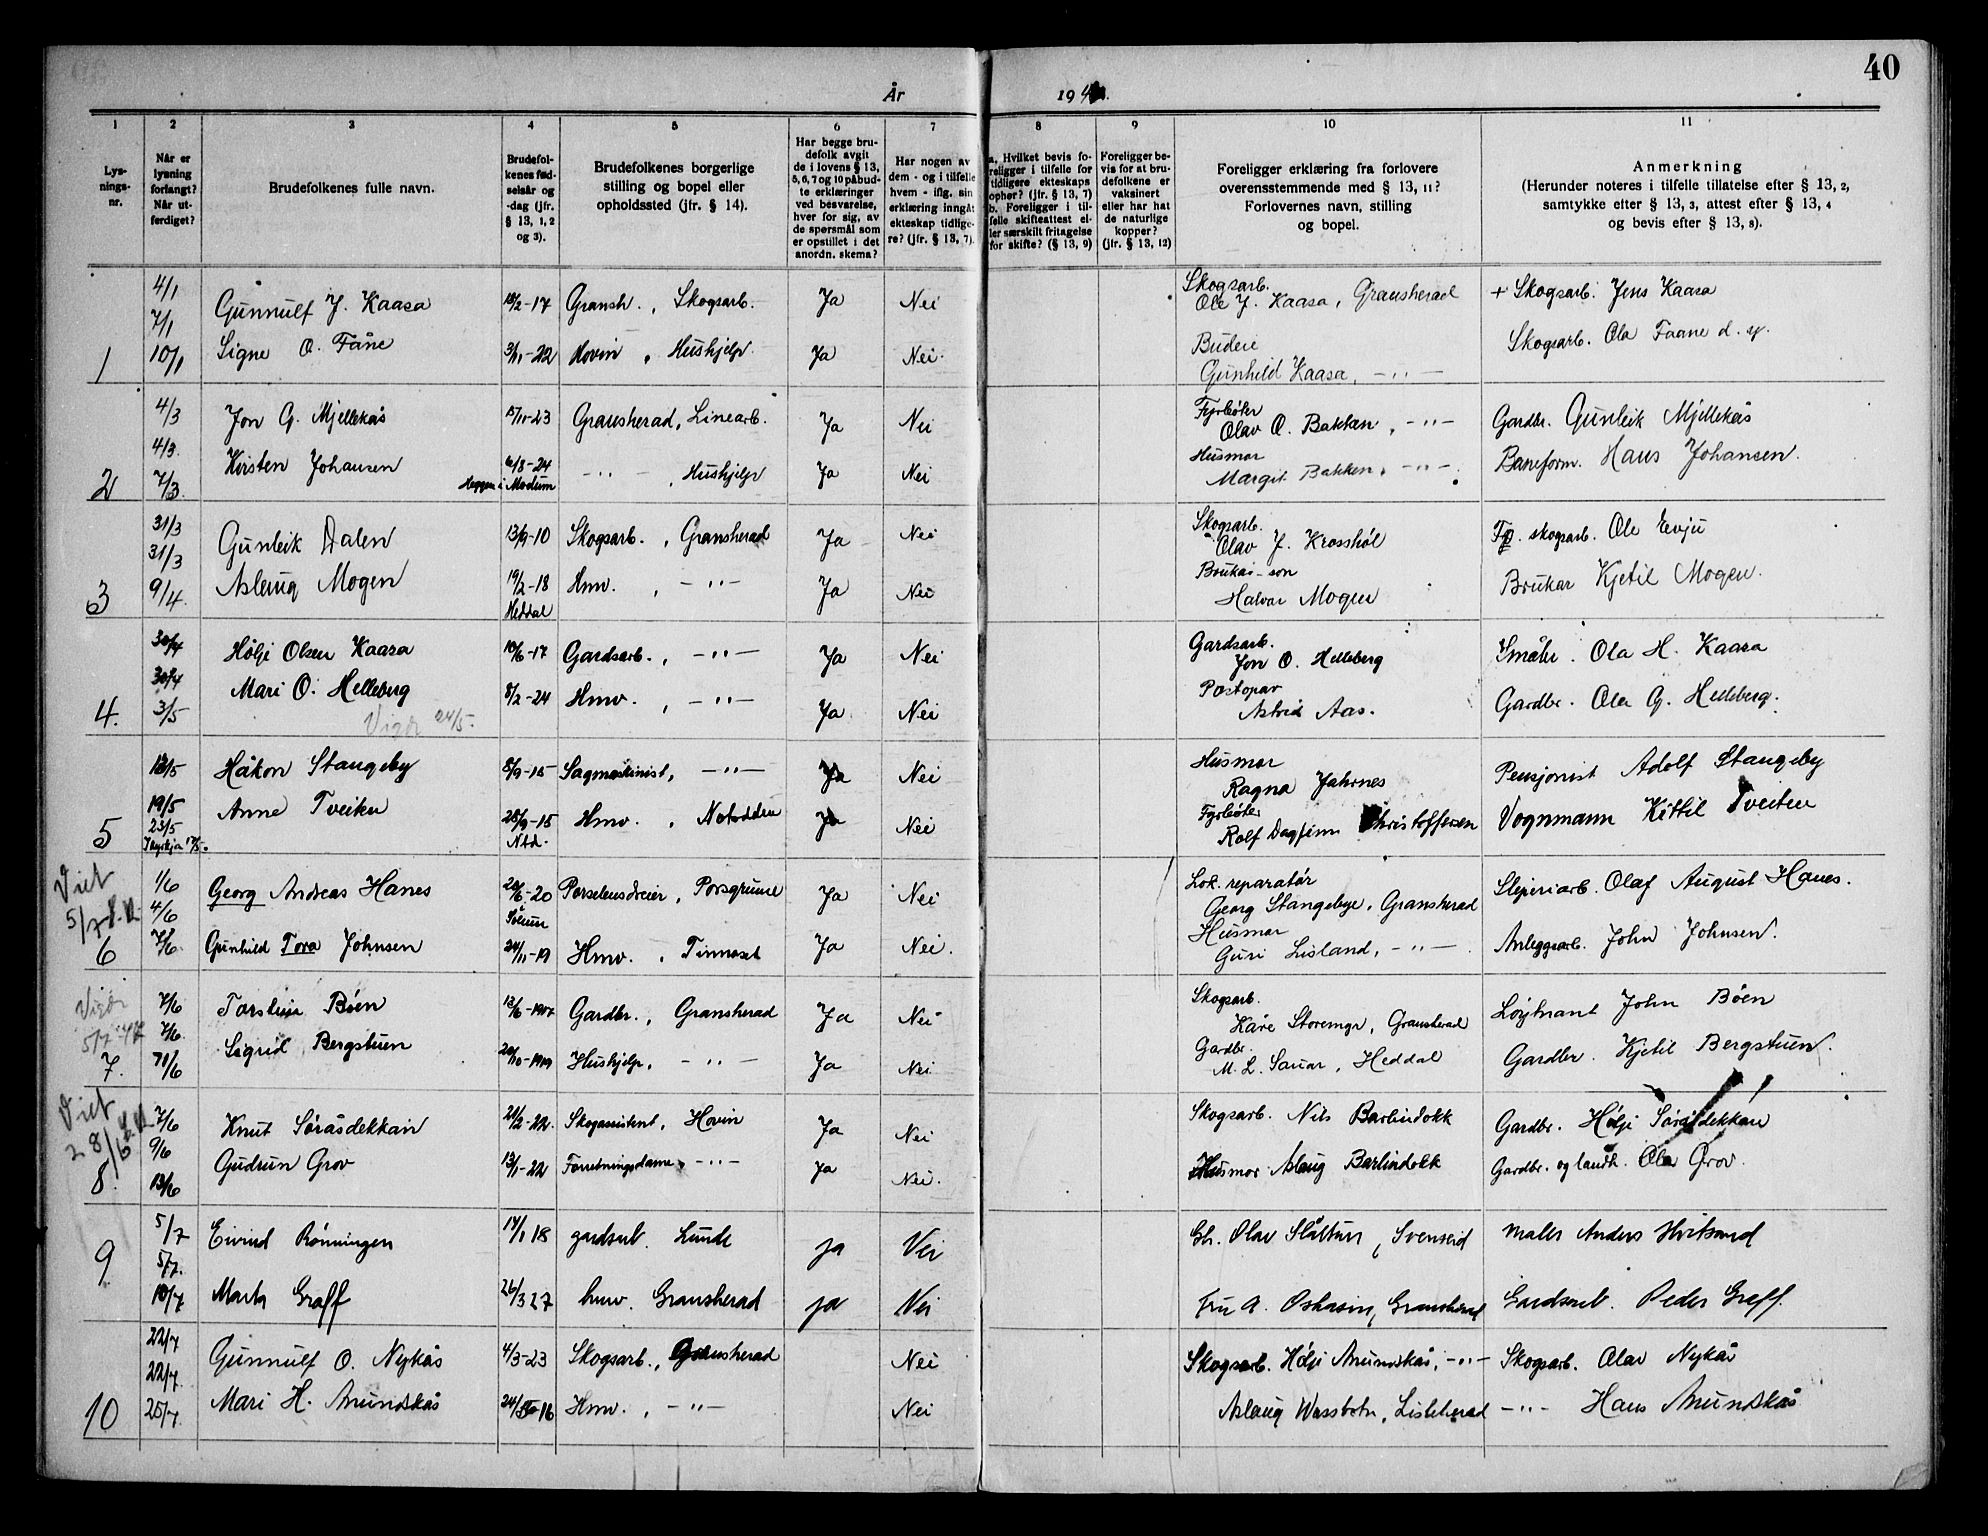 40
År
194
1
2
3
4
5
6
7
8
9
10
11
Lys-
nings-
nr.
Når er
lysning
forlangt?
Når ut-
ferdiget?
Brudefolkenes fulle navn.
Brudefol-
kenes fød-
selsår og
-dag (jfr.
§ 13, 1, 2
og 3).
Brudefolkenes borgerlige
stilling og bopel eller
opholdssted (jfr. § 14).
Har begge bru-
defolk avgit
de i lovens § 13,
5, 6, 7 og 10 påbud-
te erklæringer
ved besvarelse,
hver for sig, av
de spørsmål som
er opstillet i det
anordn. skema?
Har nogen av
dem - og i tilfelle
hvem - iflg. sin
erklæring inngåt
ekteskap tidlige-
re? (jfr. § 13, 7).
a. Hvilket bevis fo-
religger i tilfelle for
tidligere ekteskaps
ophør? (jfr. § 13, 7)
b. Foreligger i til-
felle skifteattest el-
ler særskilt fritagelse
for skifte? (§ 13, 9)
Foreligger be-
vis for at bru-
defolkene er
vaksinert
eller har hat
de naturlige
kopper?
(jfr. § 13, 12)
Foreligger erklæring fra forlovere
overensstemmende med § 13, 11?
Forlovernes navn, stilling
og bopel.
Anmerkning
(Herunder noteres i tilfelle tillatelse efter § 13, 2,
samtykke efter § 13, 3, attest efter § 13, 4
og bevis efter § 13, 8).
1
4/1
7/1
10/1
Gunnulf J. Kaasa
18/2-17
Gransh., Skogsarb.
Ja
Nei
Skogsarb.
Ole J. Kaasa, Gransherad
+ Skogsarb. Jens Kaasa
Signe O. Fåne
3/11-22
Hovin, Hushjelp.
Ja
Nei.
Budeie
Gunhild Kaasa, -"-
Skogsarb. Ola Faane d. y.
2
4/3
4/3.
7/3.
Jon G. Mjellekås
15/11-23
Gransherad, Linearb.
Ja
Nei
Fyrbøter
Olav O. Bakken, -"-
Gardbr. Gunleik Mjellekås
Kirsten Johansen
6/8-24
Heggen i Modum
-"-, Hushjelp
Ja
Nei
Husmor
Margit Bakken, -"-.
Baneform. Hans Johansen.
3
31/3
31/3
9/4.
Gunleik Dalen
13/9-10
Skogsarb., Gransherad
Ja
Nei
Skogsarb.
Olav J. Krosshøl
Fp. skogsarb. Ole Evju
Aslaug Mogen
19/2-18
Heddal
Hmv., -"-
Ja
Nei
Brukar-son
Halvor Mogen
Brukar Kjetil Mogen.
4.
30/4
30/4
3/5
Hølje Olsen Kaasa
10/6-17
Gardsarb., -"-
Ja
Nei
Gardsarb.
Jon O. Helleberg
Småbr. Ola H. Kaasa
Mari O. Helleberg
8/2-24
Hmv., -"-
Ja
Nei
Postopnr
Astrid Aas.
Gardbr. Ola G. Helleberg.
24/5.
5
13/5
19/5
23/5
Håkon Stangeby
8/9-15
Sagmaskinist, -"-
Ja
Nei
Husmor
Ragna Jahrnes
Pensjonist Adolf Stangeby
Anne Tveiten
28/9-15
Ntd.
Hmv., Notodden
Ja
Nei
Fyrbøter
Rolf Dagfinn Christoffersen
Vognmann Kittil Tveiten
Viet
5/7
6
1/6
4/6
7/6.
Georg Andreas Hanes
20/6-20
Solum
Porselensdreier, Porsgrunn
Ja
Nei
Lok. reparatør
Georg Stangebye, Gransherad
Sliperiarb. Olaf August Hanes.
Gunhild Tora Johnsen
24/11-19
Hmv., Tinnoset
Ja
Nei.
Husmor
Guri Lisland, -"-
Anleggsarb. John Johnsen.
5/7-47
7.
7/6
7/6.
11/6
Torstein Bøen
13/6-1907
Gardbr., Gransherad
Ja
Nei
Skogsarb.
Kåre Storemyr, Gransherad
Løytnant John Bøen
Sigrid Bergstuen
20/10-1919
Hushjelp, -"-
Ja
Nei
Gardbr.
M. L. Sauar, Heddal
Gardbr. Kjetil Bergstuen.
Viet
28/6
8.
7/6
9/6
13/6
Knut Søråsdekkan
21/2-22.
Skogassistent, Hovin
Ja
Nei
Skogsarb. Nils Barlindokk
Gardbr. Hølje Søråsdekkan
Gudrun Grov
13/1-22
Forretningsdame, -"-
Ja
Nei.
Husmor Aslaug Barlindokk
Gardbr. og landh. Ola Grov.
9
5/7
5/7.
10/7
Eivind Rønningen
14/1 18
gardsarb. Lunde
ja
Nei
Gbr. Olav Slåttun, Svenseid
maler Anders Hvitsand
Marta Graff
26/3 27
hmv. Gransherad
ja
Nei
Fru A. Oskasin, Gransherad
Gardsarb. Peder Graff.
10
22/7
22/7.
25/7.
Gunnulf O. Nykås
4/3-23
Skogsarb., Gransherad
Nei
Skogsarb. Hølje Anundskås, -"-
Skogsarb. Olav Nykås
Mari H. Anundskås
24/10-16
Hmv., -"-
Nei
Aslaug Wassbotn, Lisleherad
-"- Hans Anundskås